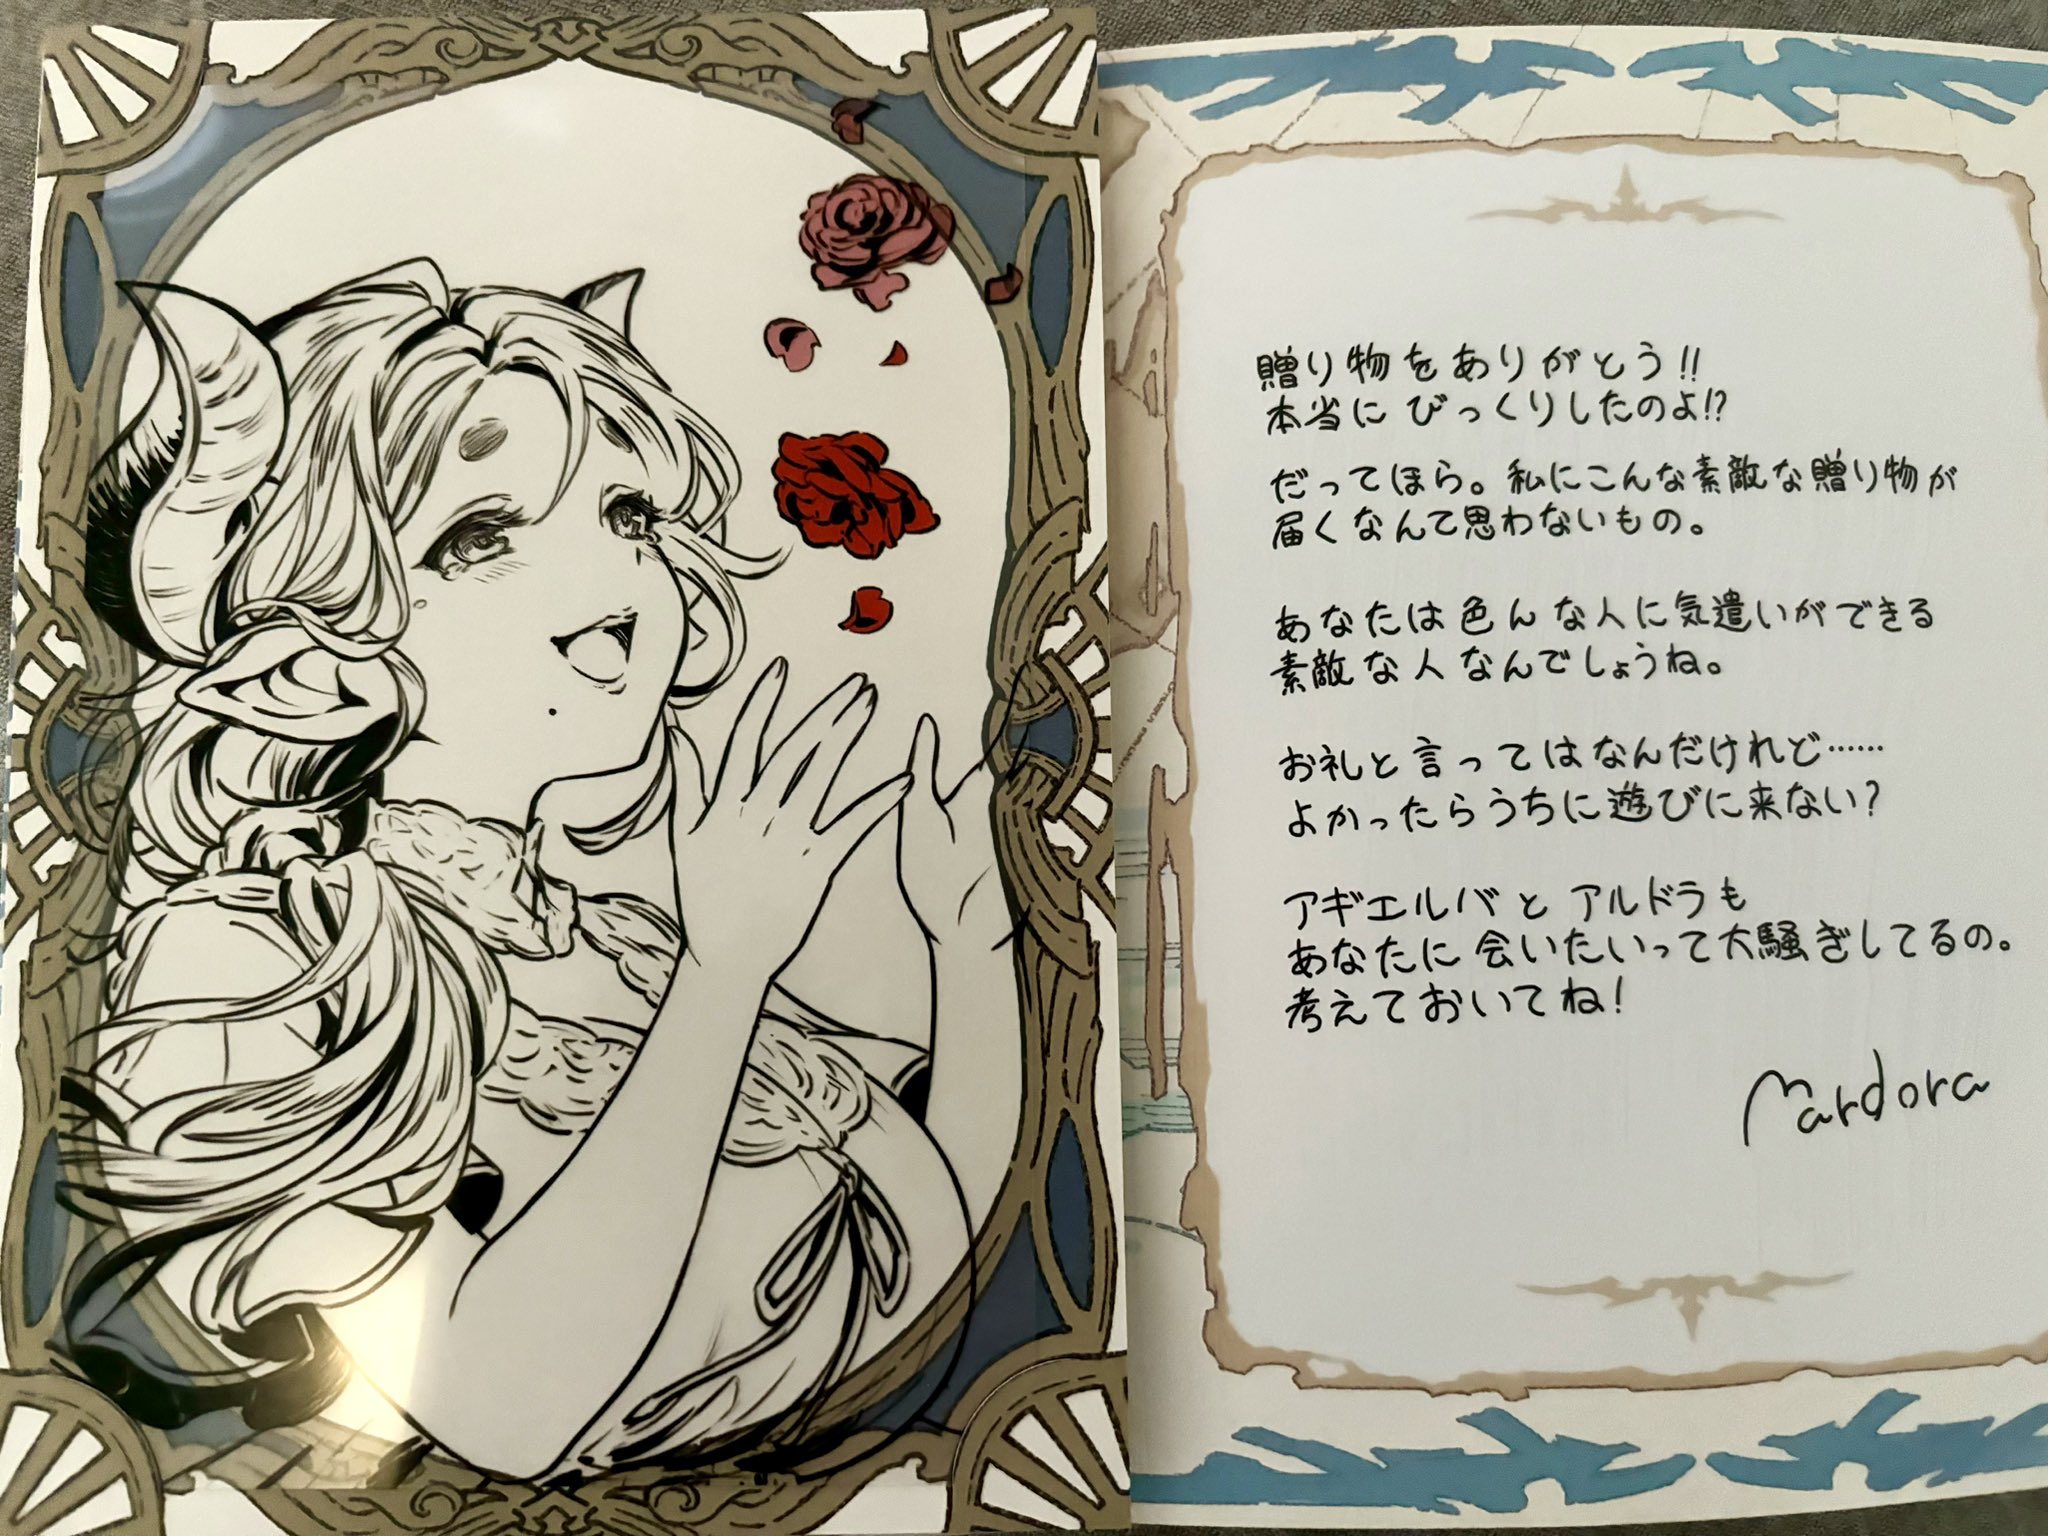 贈り物をありがとう!!
本当にびっくりしたのよ!?
だってほら。私にこんな素敵な贈り物が
届くなんて思わないもの。
あなたは色んな人に気遣いができる
素敵な人なんでしょうね。
お礼と言ってはなんだけれど……
よかったらうちに遊びに来ない?
アギエルバとアルドラも
あなたに会いたいって大騒ぎしてるの。
考えておいてね!
Mardora